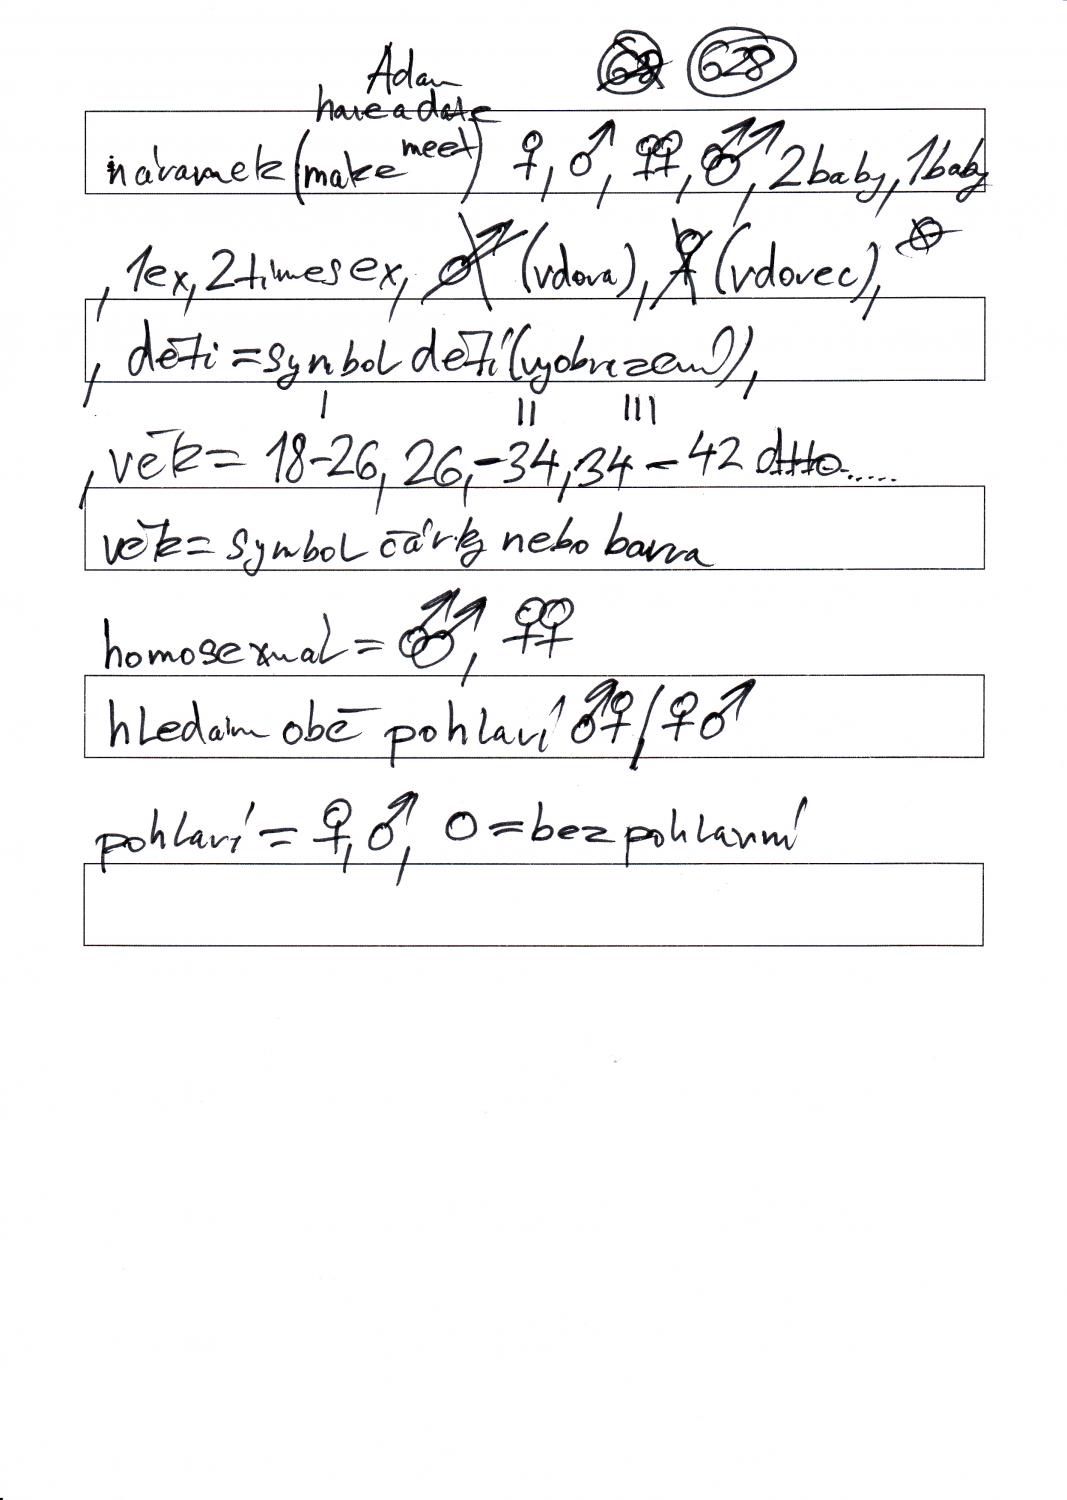 Adam 628
have a date
náramek (make meet) ♀, ♂, ♀♀, ♂♂, 2 baby, 1 baby
, 1ex, 2 times ex, ♂ (vdova), ♀ (vdovec),
, děti = symbol dětí (vyobrazení),
I II III
, věk = 18-26, 26,-34, 34-42 dtto.....
věk = symbol čárky nebo barva
homosexual = ♂♂, ♀♀
hledám obě pohlaví ♂♀/♀♂
pohlaví = ♀, ♂, O = bez pohlavní